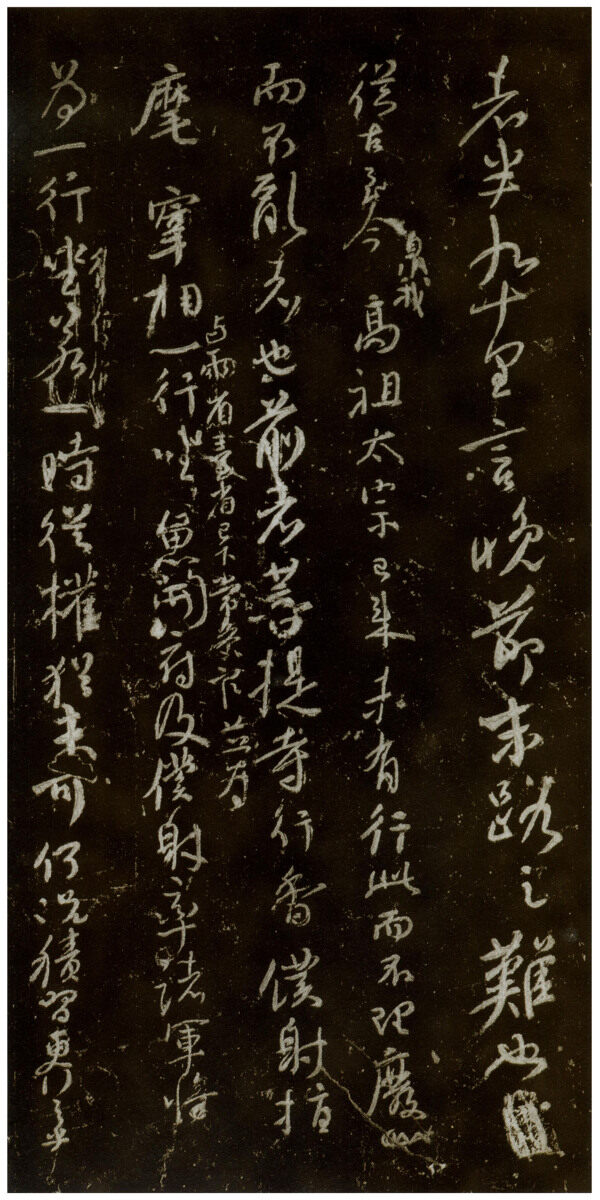 者半九十里言晚節末路之難也
從古至今
臮我
高祖太宗已來未有行此而不理廢此
而不亂者也前者菩提寺行香僕射指
麾宰相
与兩省臺省已下常參官並為
一行坐魚開府及僕射率諸軍將
為一行坐若一時從權猶未可何況積習更行之乎